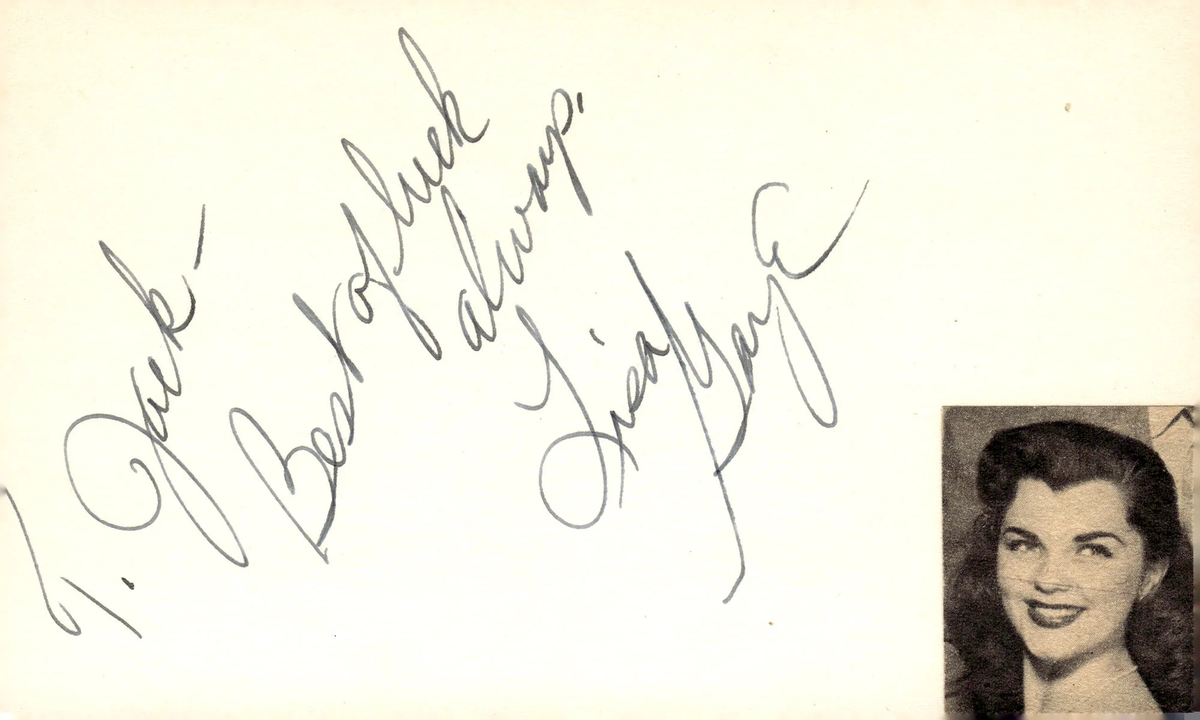 To Jack -
Best of luck
always.
Lisa Gaye